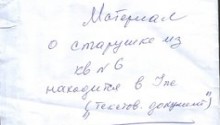 Материал
о старушке из
кв № 6
находится в Ine
("текстов. документ")